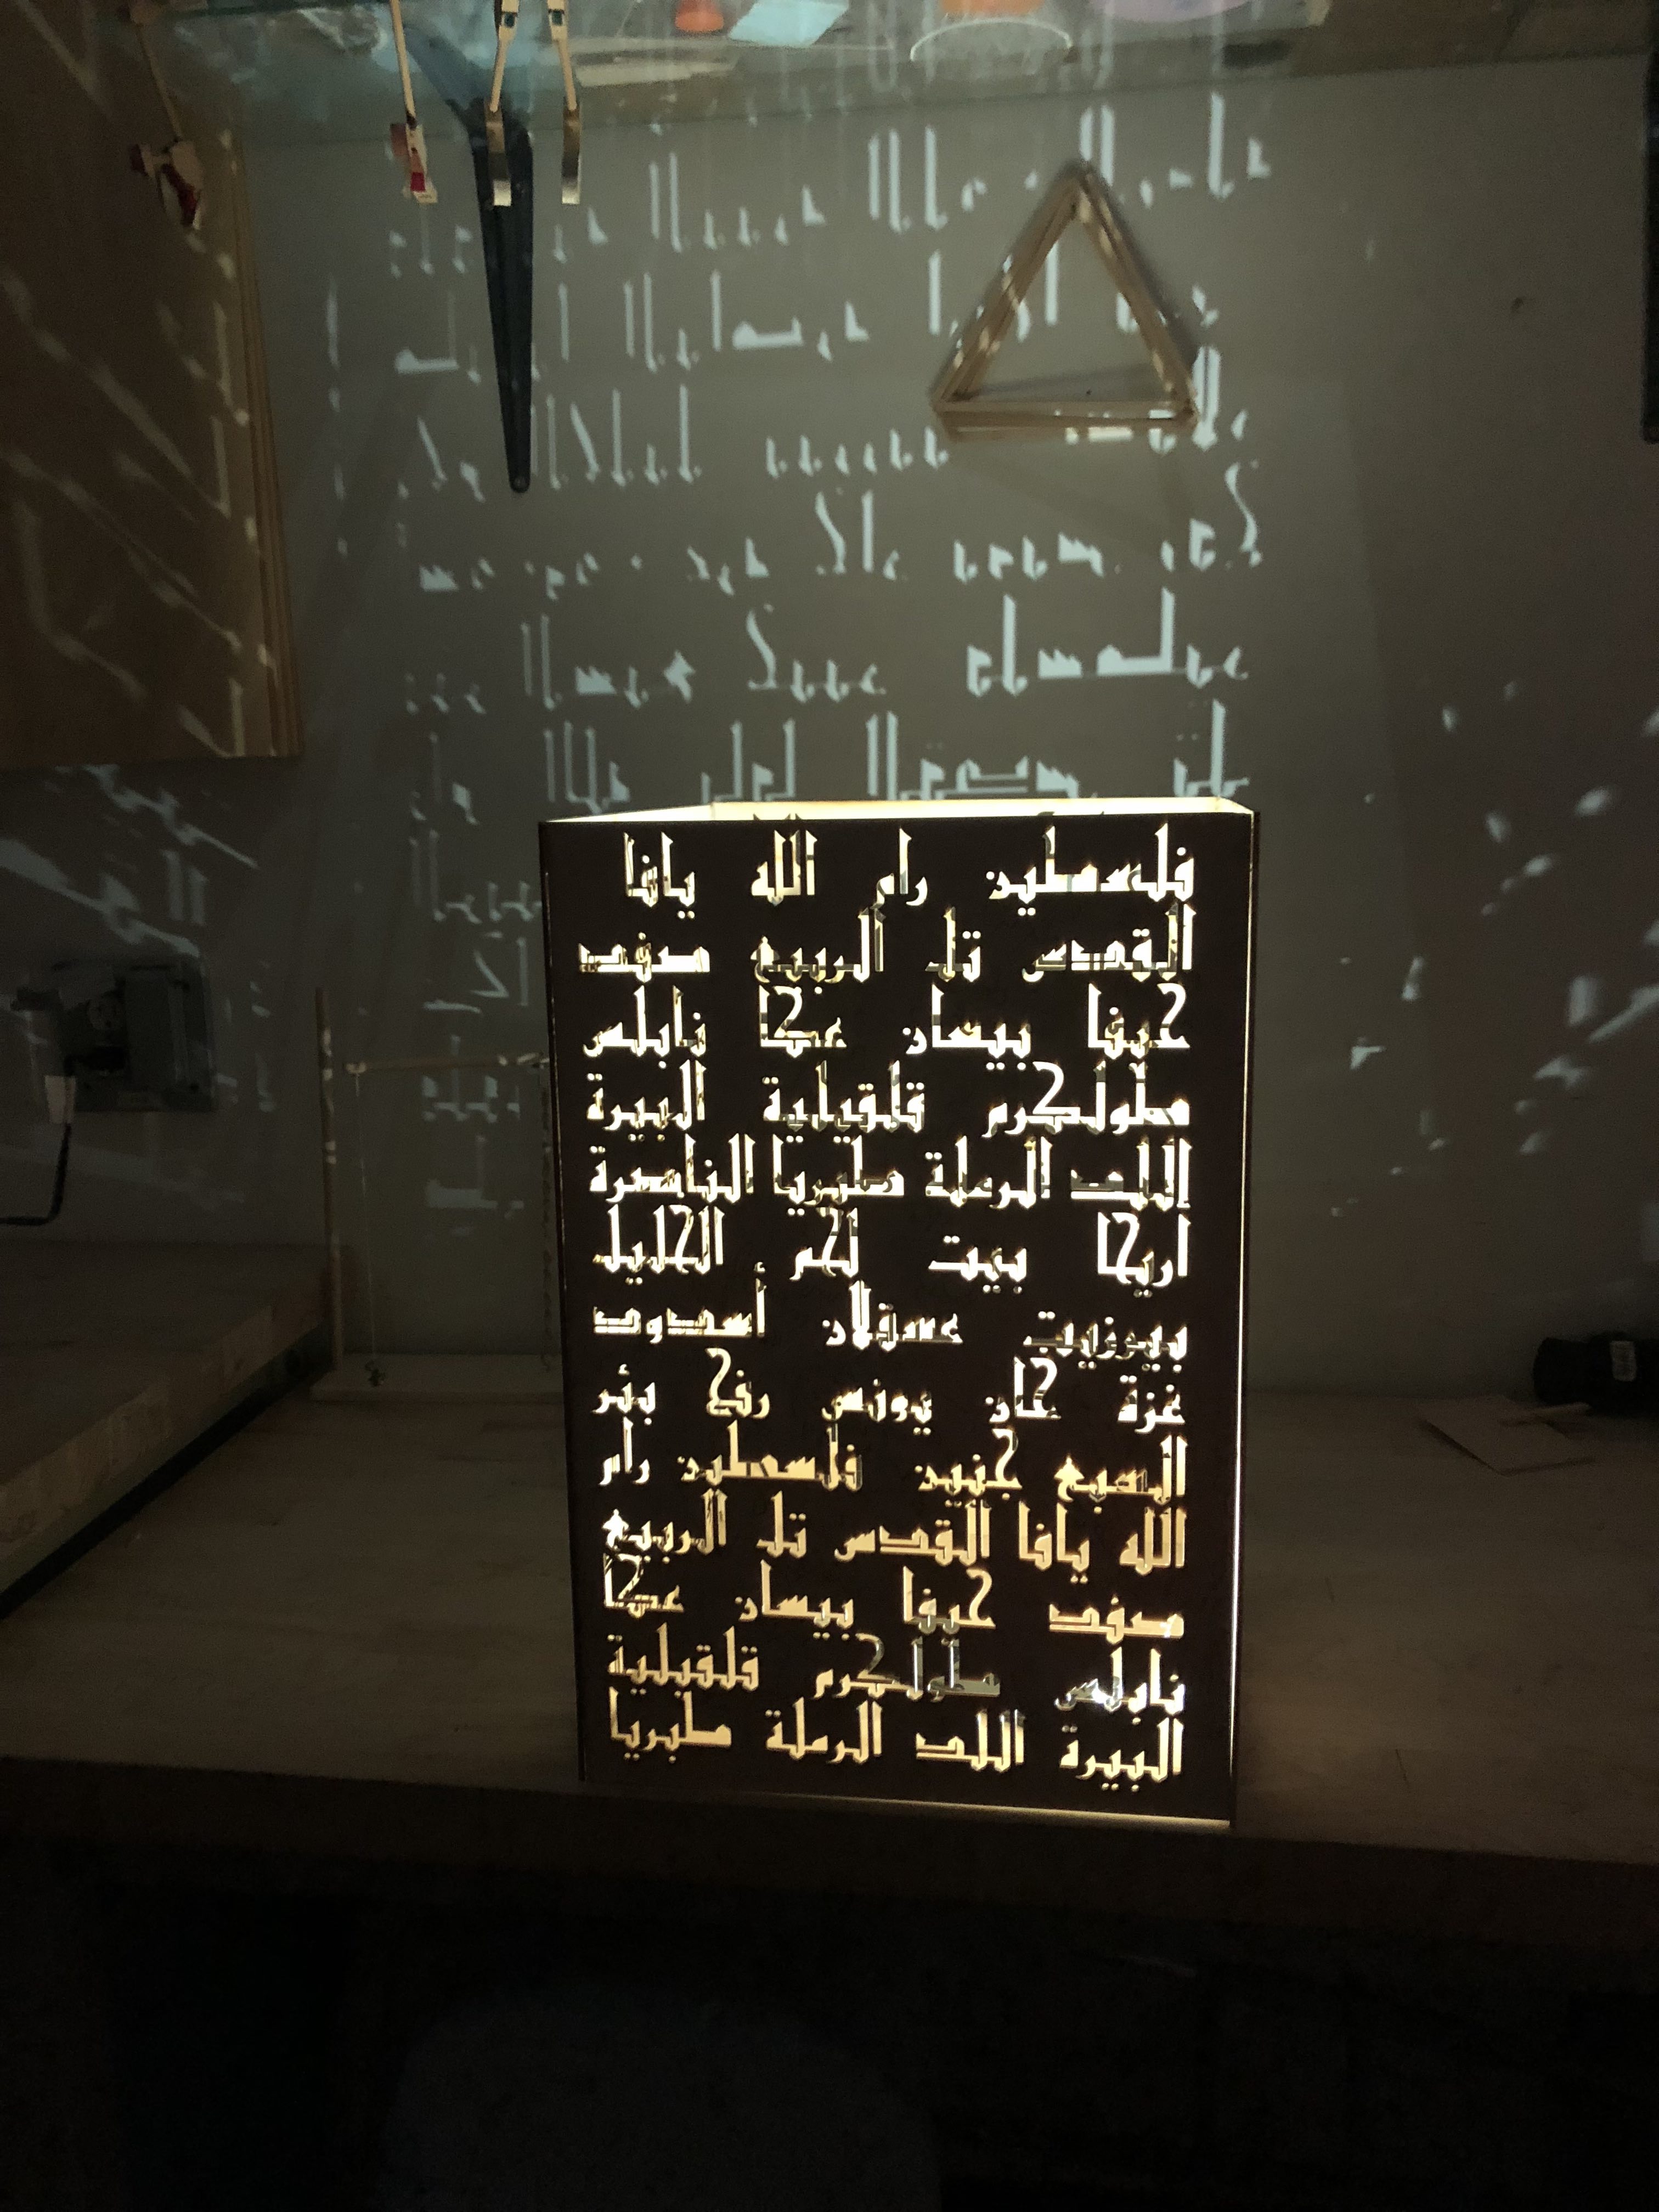 فلسطين رام الله يافا
القدس تل الربيع صفد
حيفا بيسان عكا نابلس
طولكرم قلقيلية البيرة
اللد الرملة طبريا الناصرة
اريحا بيت لحم الخليل
بيرزيت عسقلان أسدود
غزة خان يونس رفح بئر
السبع جنين فلسطين رام
الله يافا القدس تل الربيع
صفد حيفا بيسان عكا
نابلس طولكرم قلقيلية
البيرة اللد الرملة طبريا